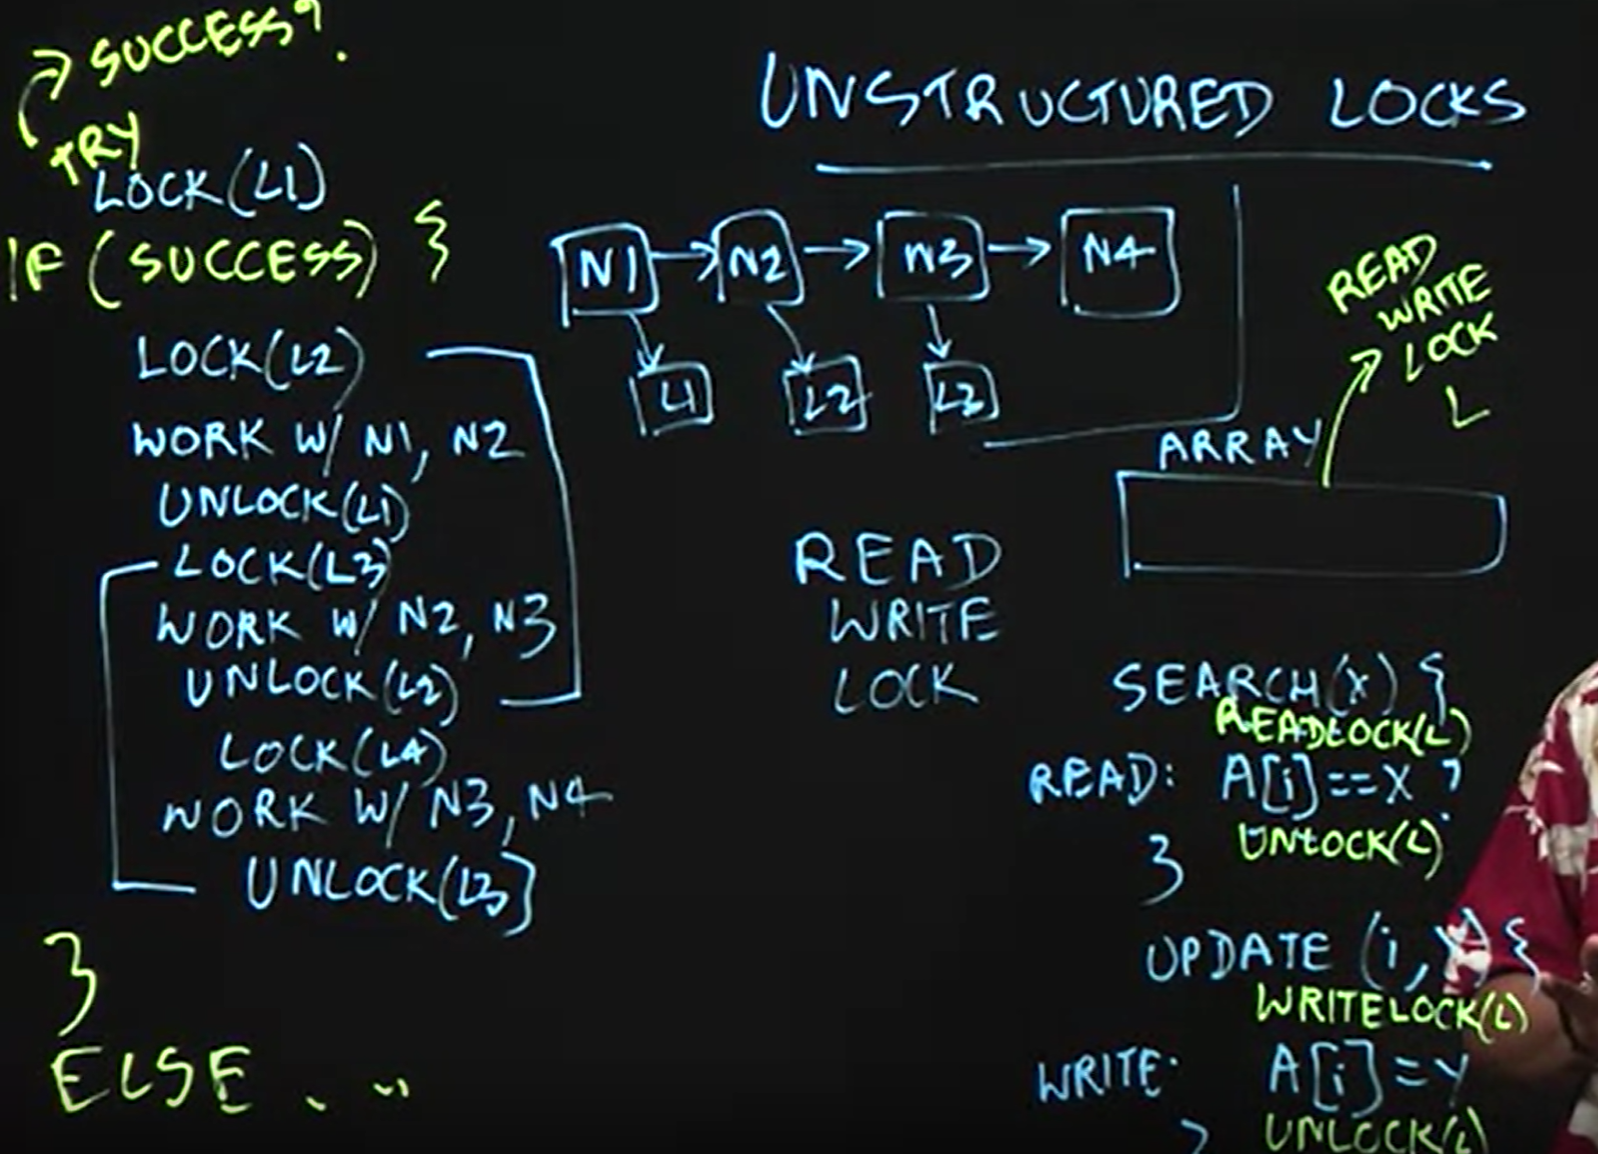 SUCCESS?
TRY
LOCK(L1)
IF (SUCCESS) {
LOCK(L2)
WORK W/ N1, N2
UNLOCK(L1)
LOCK(L3)
WORK W/ N2, N3
UNLOCK(L2)
LOCK(L4)
WORK W/ N3, N4
UNLOCK(L3)
}
ELSE . ..
UNSTRUCTURED LOCKS
N1 N2 N3 N4
L1 L2 L3
READ
WRITE
LOCK
READ
WRITE
LOCK
L
ARRAY
SEARCH(X) {
READLOCK(L)
READ: A[i]==X ?
UNLOCK(L)
}
UPDATE (i, Y) {
WRITELOCK(L)
WRITE: A[i]=Y
UNLOCK(L)